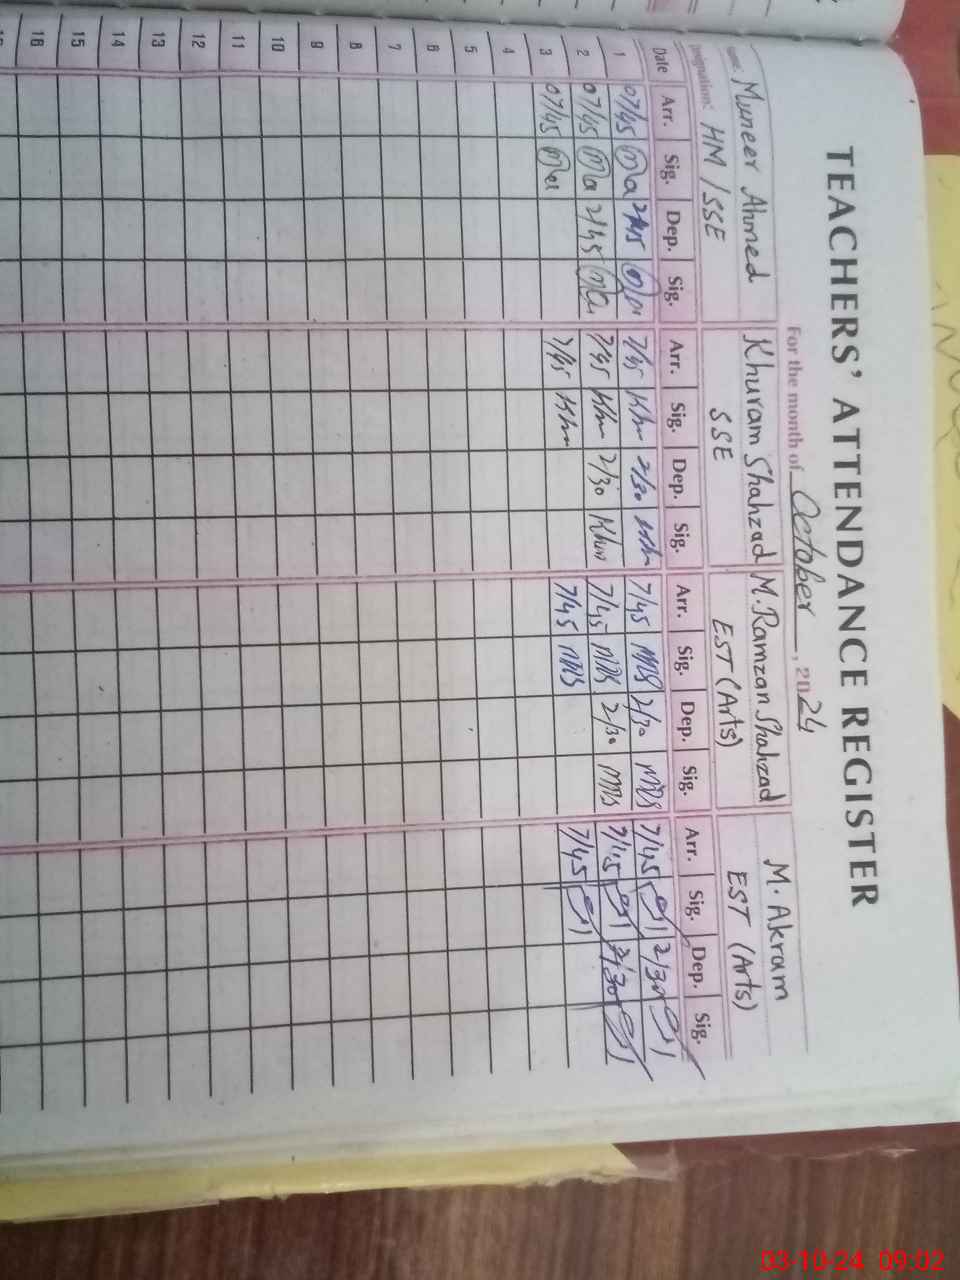 TEACHERS' ATTENDANCE REGISTER
For the month of October, 2024
Name: Muneer Ahmed Khuram Shahzad M. Ramzan Shahzad M. Akram
Designation: HM/SSE SSE EST (Arts) EST (Arts)
Date Arr. Sig. Dep. Sig. Arr. Sig. Dep. Sig. Arr. Sig. Dep. Sig. Arr. Sig. Dep. Sig.
1 07/45 2/45 7/45 Khu 2/30 7/45 MRS 2/30 MRS 7/45 2/30
2 07/45 2/45 7/45 Khu 2/30 Khu 7/45 MRS 2/30 MRS 7/45 2/30
3 07/45 7/45 Khu 7/45 MRS 7/45
4
5
6
7
8
9
10
11
12
13
14
15
16
03-10-24 09:02